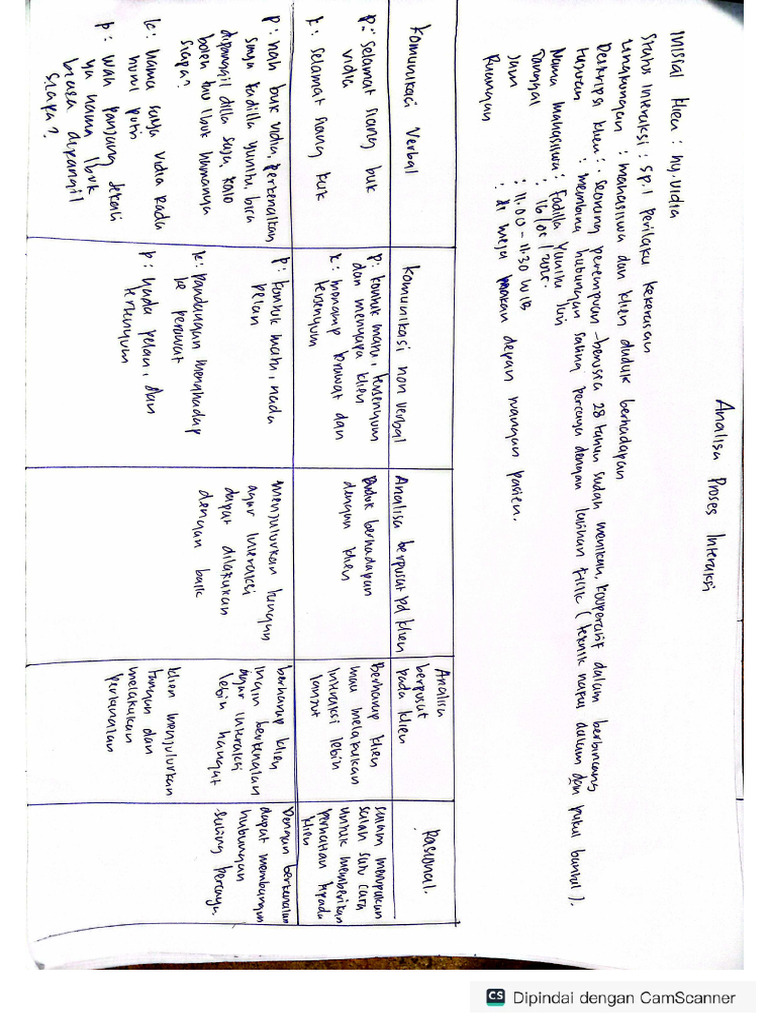 Analisa Proses Interaksi
Inisial klien : ny. Vidia
Status interaksi : Sp.1 perilaku kekerasan
Lingkungan : mahasiswa dan klien duduk berhadapan
Deskripsi klien : seorang perempuan berusia 28 tahun sudah menikah, kooperatif dalam berbincang
tujuan : membina hubungan saling percaya dengan latihan fisik ( teknik nafas dalam dan pukul bantal ).
Nama mahasiswa : Fadilla Yunita
Tanggal : 16/05/2025.
Jam : 11.00 - 11.30 WIB
Ruangan : di meja makan depan ruangan pasien.
Komunikasi Verbal
Komunikasi non verbal
Analisa berpusat pd klien
Analisa
berpusat
pada klien
Rasional.
P : Selamat siang buk
vidia
K : Selamat siang kuk
P : kontak mata, tersenyum
dan menyapa klien
K : menatap prawat dan
tersenyum
Duduk berhadapan
dengan klien
Berharap klien
mau melakukan
interaksi lebih
lanjut
salam merupakan
salah satu cara
untuk memberikan
perhatian kpada
klien
P : nah buk vidia, perkenalkan
saya Fadilla Yunita, bisa
dipanggil dilla saja, kalo
boleh tau Ibuk namanya
siapa?
K : nama saya Vidia Ratu
nurul putri
P : wah panjang sekali
ya nama Ibuk
biasa dipanggil
siapa?
P : kontak mata, nada
pelan
K : pandangan menghadap
ke perawat
P : nada pelan, dan
tersenyum
menjulurkan tangan
agar interaksi
dapat dilakukan
dengan baik
berharap klien
ingin berkenalan
agar interaksi
lebih hangat
klien menjulurkan
tangan dan
melakukan
perkenalan
Dengan berkenalan
dapat membangun
hubungan
saling percaya
CS Dipindai dengan CamScanner